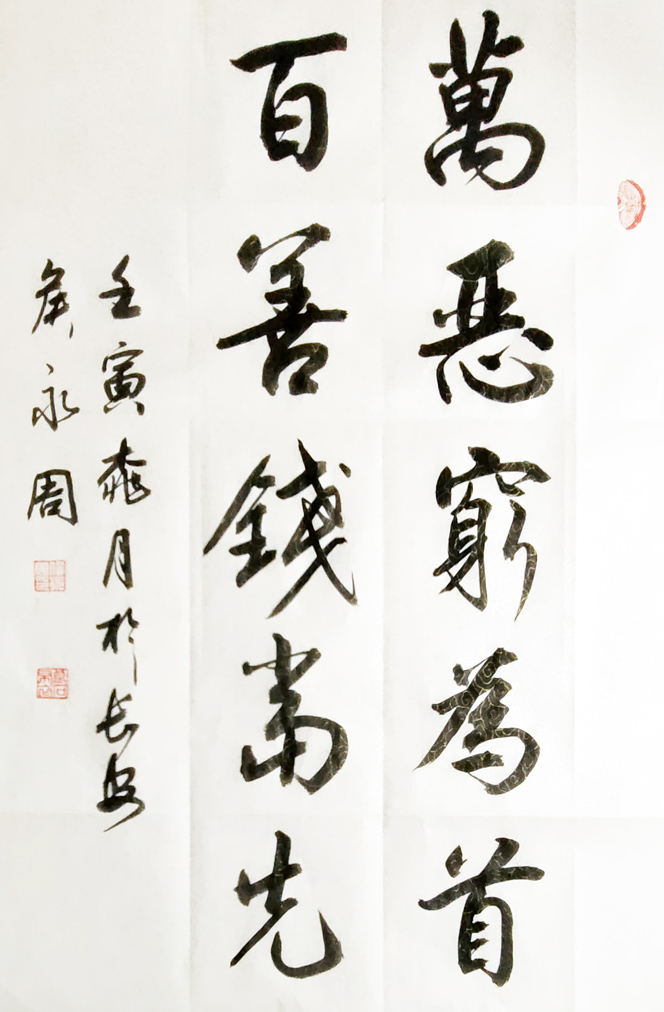 萬惡窮為首
百善錢當先
壬寅桃月於长安
侯永周